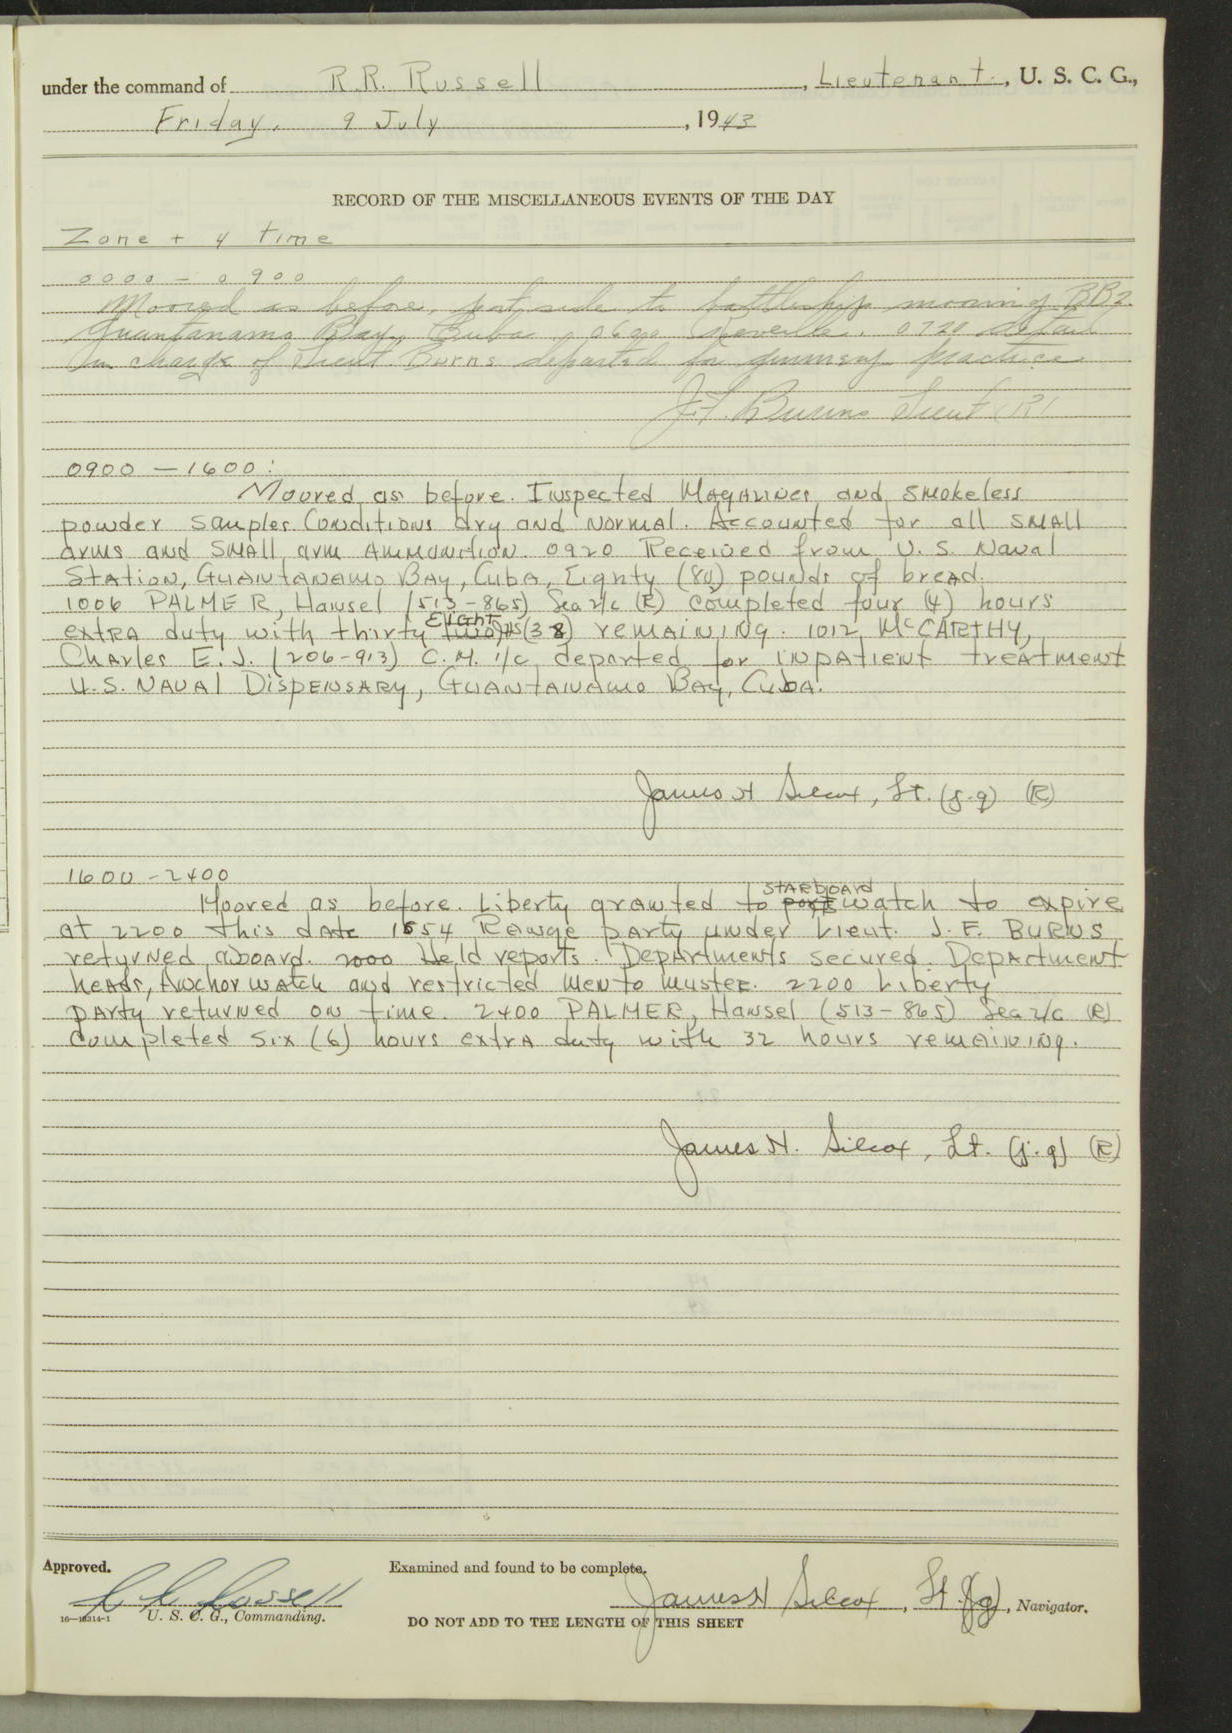 under the command of R.R. Russell, Lieutenant, U. S. C. G.,
Friday, 9 July, 1943
RECORD OF THE MISCELLANEOUS EVENTS OF THE DAY
Zone + 4 time
0000 - 0900
Moored as before, port side to battleship mooring BB2
Guantanamo Bay, Cuba. 0600 Reveille. 0720 detail
in charge of Lieut. Burns departed for gunnery practice
J.F. Burns Lieut (R)
0900 - 1600:
Moored as before. Inspected Magazines and smokeless
powder samples. Conditions dry and normal. Accounted for all small
arms and small arm ammunition. 0920 Received from U. S. Naval
Station, Guantanamo Bay, Cuba, Eighty (80) pounds of bread.
1006 PALMER, Hansel (513-865) Sea 2/c (R) completed four (4) hours
Eight
extra duty with thirty two hrs (38) remaining. 1012 McCARTHY,
Charles E. J. (206-913) C.M. 1/c departed for inpatient treatment
U.S. Naval Dispensary, Guantanamo Bay, Cuba.
James H Silcox, Lt. (j.g) (R)
1600 - 2400
STARBOARD
Moored as before. Liberty granted to port watch to expire
at 2200 this date 1654 Range party under Lieut. J. F. BURNS
returned aboard. 2000 Held reports. Departments secured. Department
heads, Anchor watch and restricted men to muster. 2200 Liberty
party returned on time. 2400 PALMER, Hansel (513-865) Sea 2/c (R)
completed six (6) hours extra duty with 32 hours remaining.
James H. Silcox, Lt. (j.g) (R)
Approved. Examined and found to be complete.
R R Russell James H Silcox, Lt (jg), Navigator.
U. S. C. G., Commanding.
DO NOT ADD TO THE LENGTH OF THIS SHEET